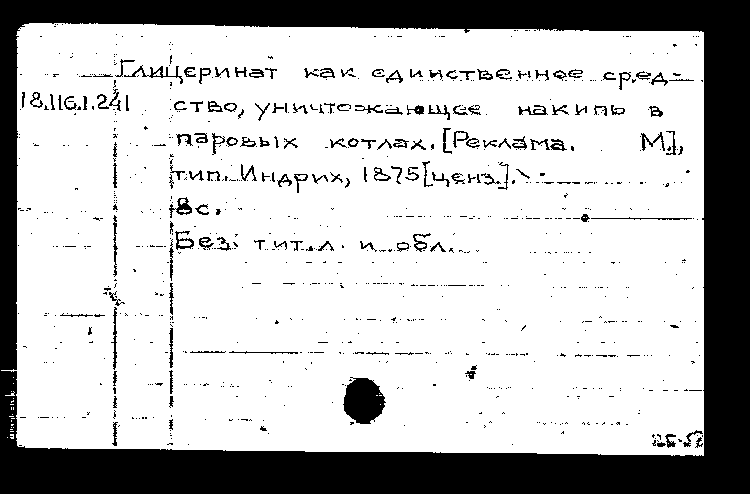 Глицеринат как единственное сред-
18.116.1.241 ство, уничтожающее накипь в
паровых котлах. [Реклама. М.],
тип. Индрих, 1875 [ценз.].
8с.
Без тит.л. и обл.